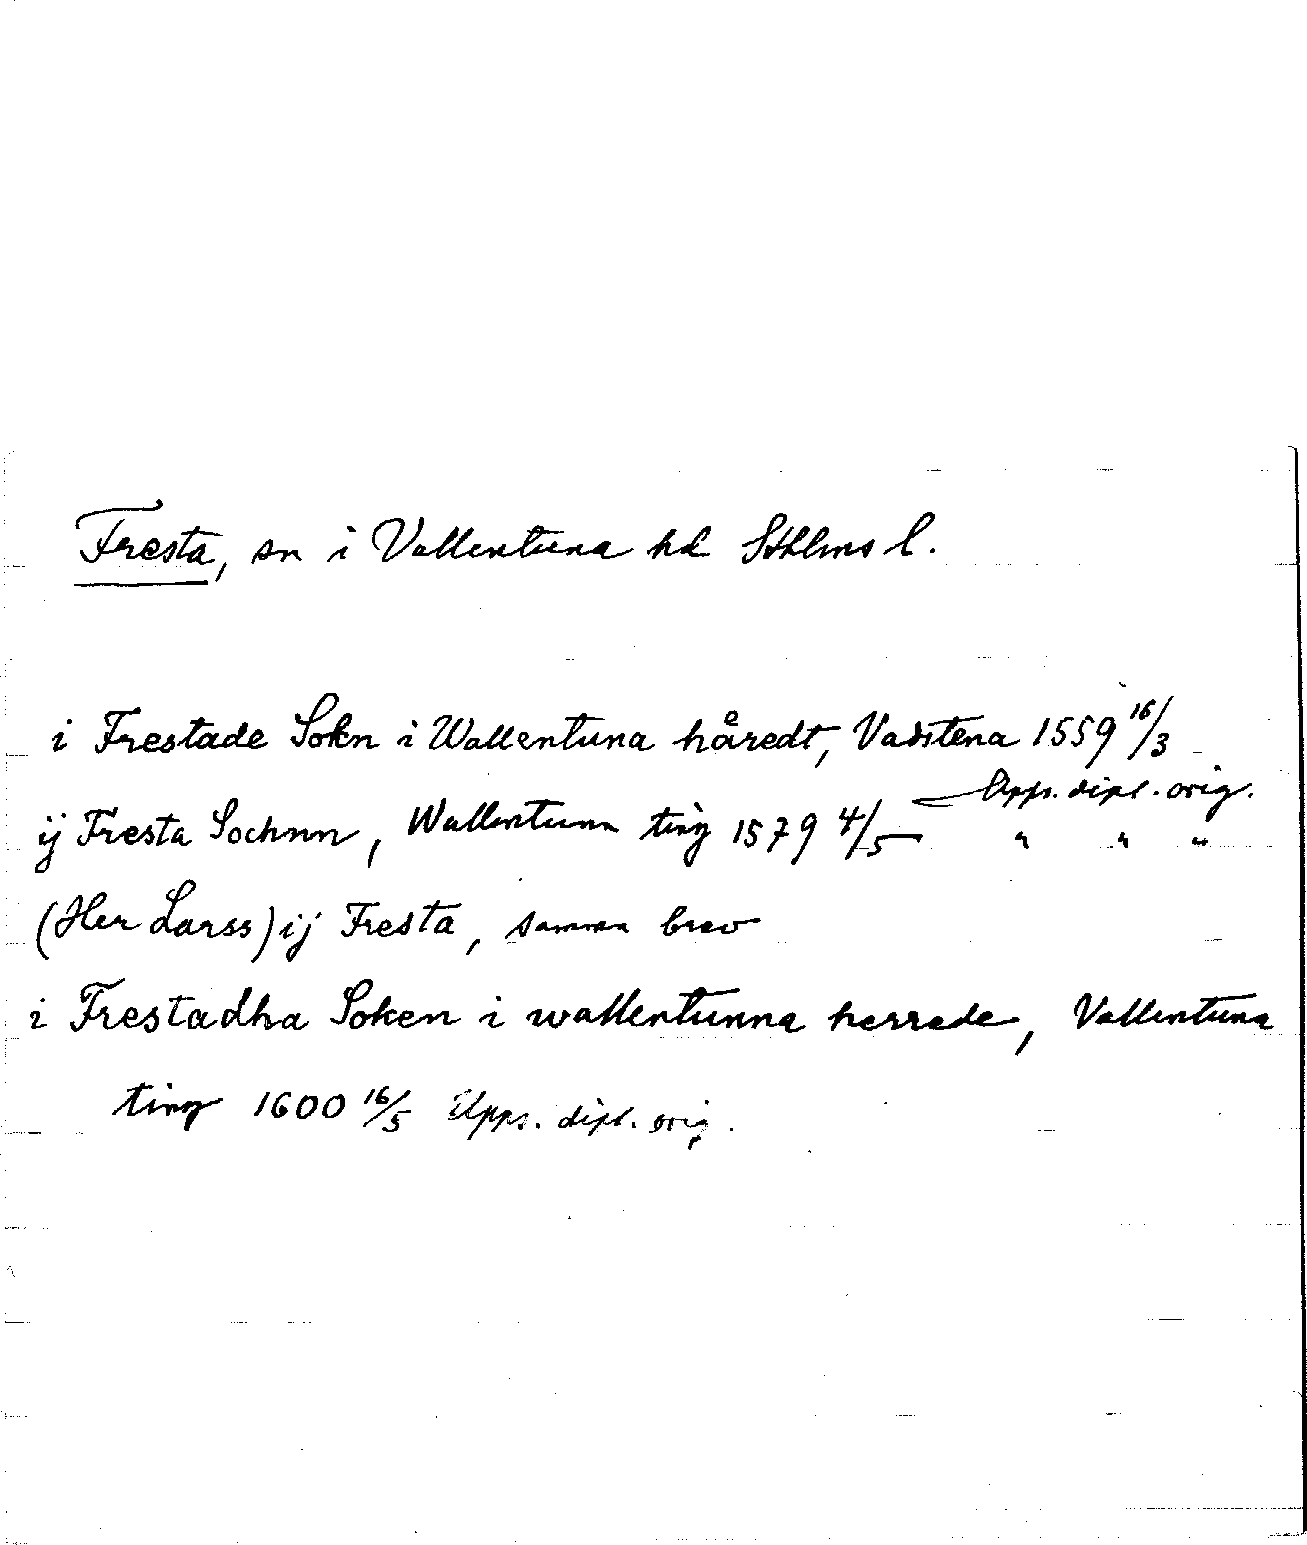 Fresta, sn i Vallentuna hd Sthlms l.
i Frestade Sokn i Wallentuna håredt, Vadstena 1559 16/3
Upps. dipl. orig.
ij Fresta Sochnn, Wallentuna ting 1579 4/5 " " "
(Her Larss) ij Fresta, samma brev
i Frestadha Soken i wallentunna herrade, Vallentuna
ting 1600 16/5 Upps. dipl. orig.